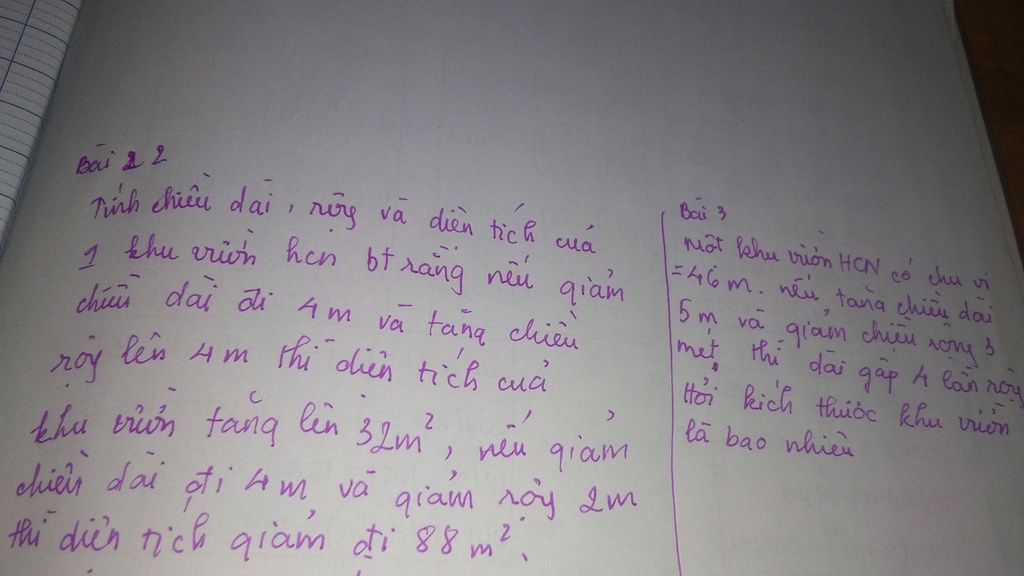 Bài 2
Tính chiều dài, rộng và diện tích của
1 khu vườn hcn bt rằng nếu giảm
chiều dài đi 4m và tăng chiều
rộng lên 4m thì diện tích của
khu vườn tăng lên 32m², nếu giảm
chiều dài đi 4m và giảm rộng 2m
thì diện tích giảm đi 88m².
Bài 3
Một khu vườn HCN có chu vi
=46m. nếu tăng chiều dài
5m và giảm chiều rộng 3
mét, thì dài gấp 4 lần rộng
Hỏi kích thước khu vườn
là bao nhiêu